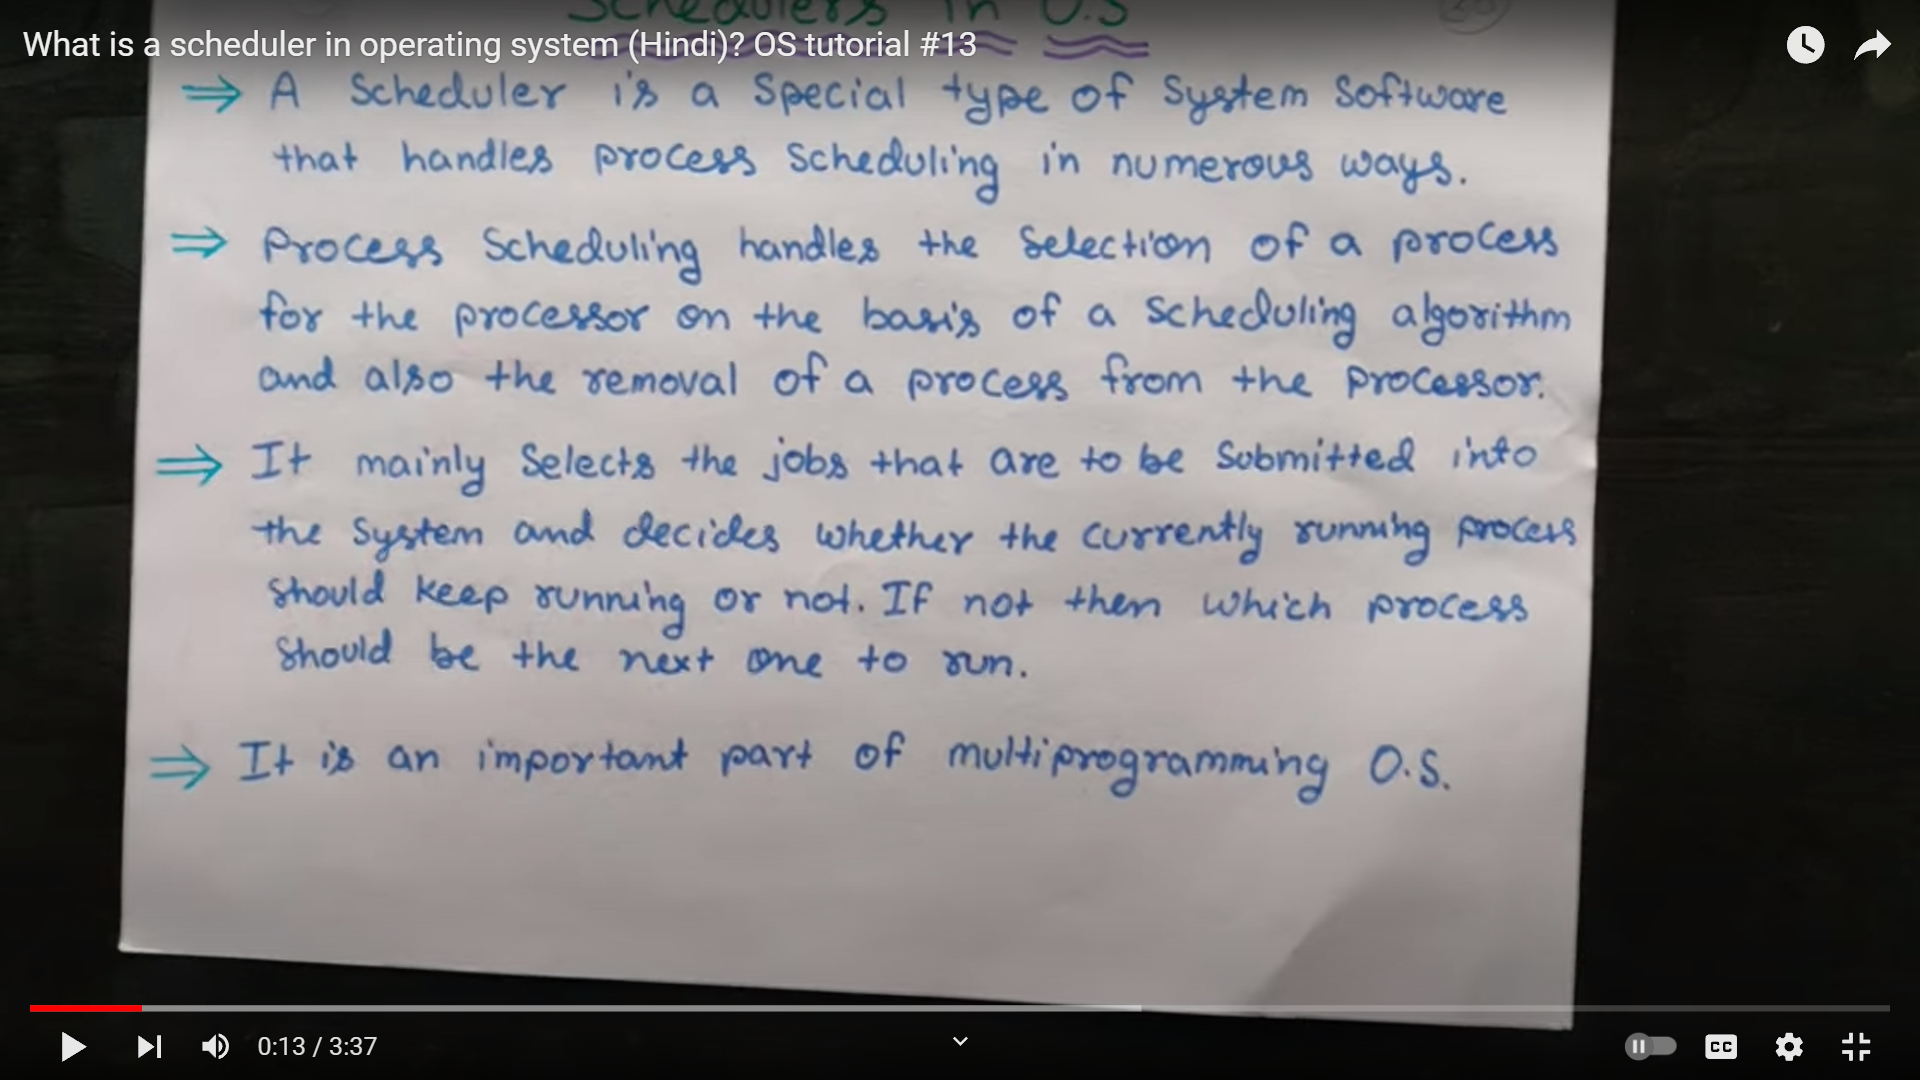 Schedulers in O.S
What is a scheduler in operating system (Hindi)? OS tutorial #13
⇒ A Scheduler is a Special type of System Software
that handles process Scheduling in numerous ways.
⇒ Process Scheduling handles the Selection of a process
for the processor on the basis of a Scheduling algorithm
and also the removal of a process from the processor.
⇒ It mainly Selects the jobs that are to be Submitted into
the System and decides whether the currently running process
Should keep running or not. If not then which process
Should be the next one to run.
⇒ It is an important part of multiprogramming O.S.
0:13 / 3:37
CC